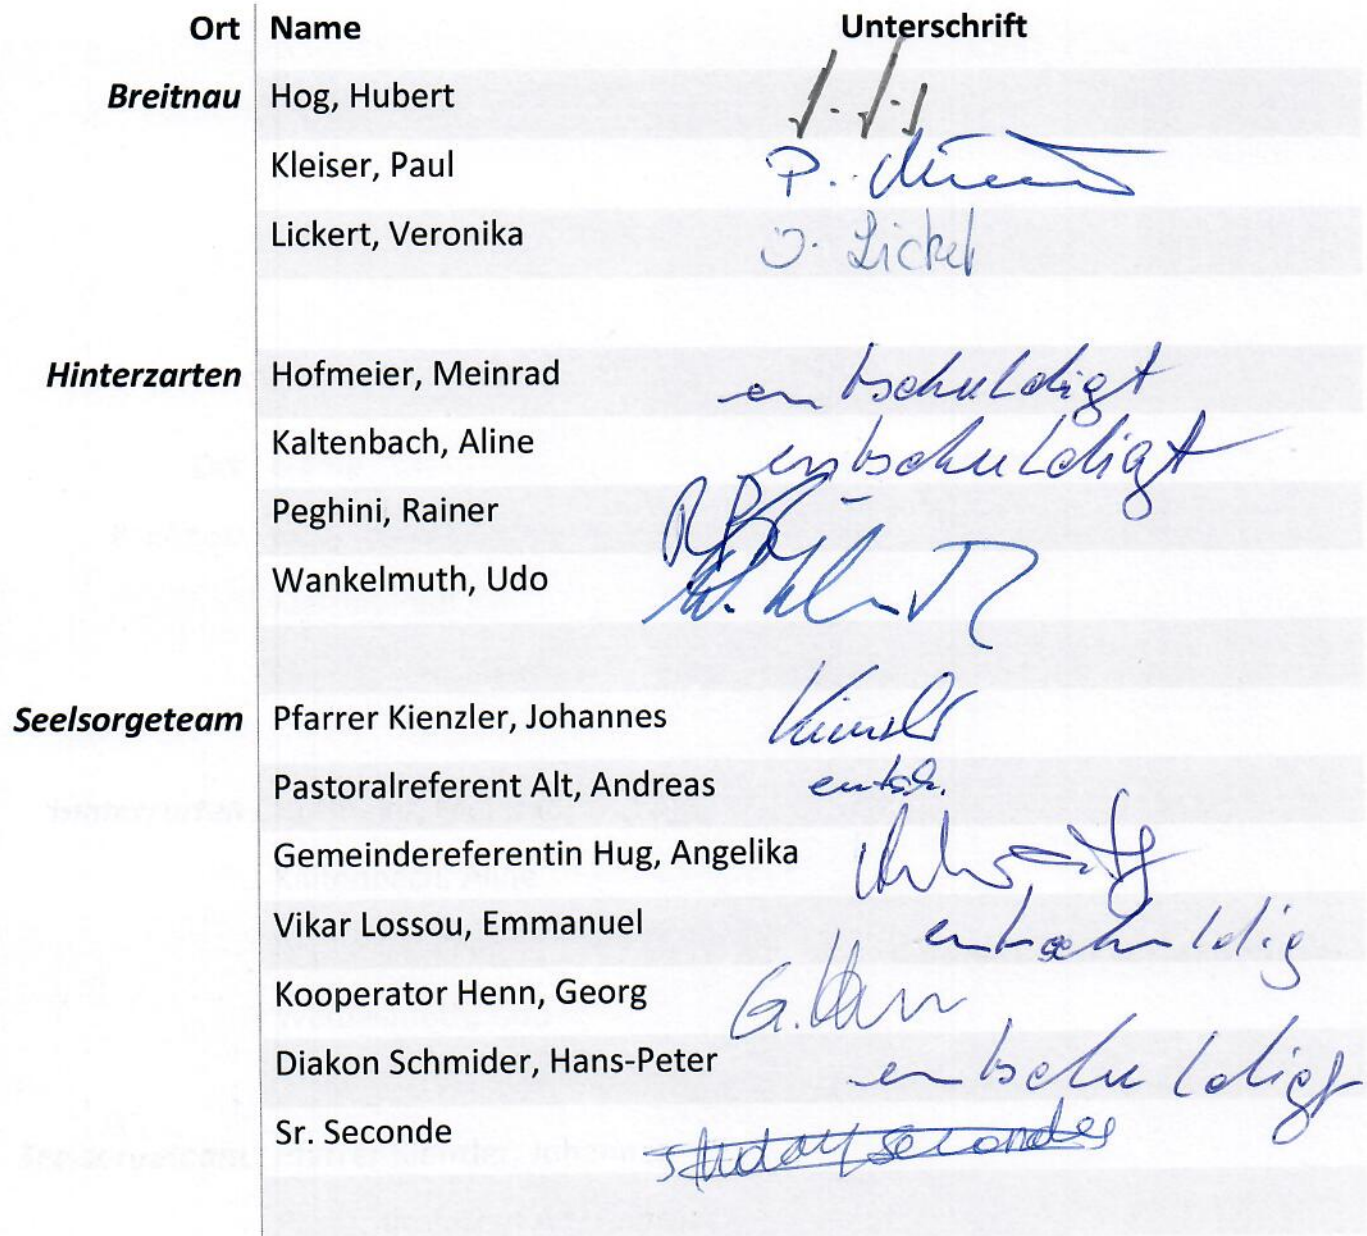 Ort Name Unterschrift
Breitnau Hog, Hubert
Kleiser, Paul P.
Lickert, Veronika
Hinterzarten Hofmeier, Meinrad entschuldigt
Kaltenbach, Aline entschuldigt
Peghini, Rainer
Wankelmuth, Udo
Seelsorgeteam Pfarrer Kienzler, Johannes
Pastoralreferent Alt, Andreas entsch.
Gemeindereferentin Hug, Angelika
Vikar Lossou, Emmanuel entschuldig
Kooperator Henn, Georg G. Henn
Diakon Schmider, Hans-Peter entschuldigt
Sr. Seconde